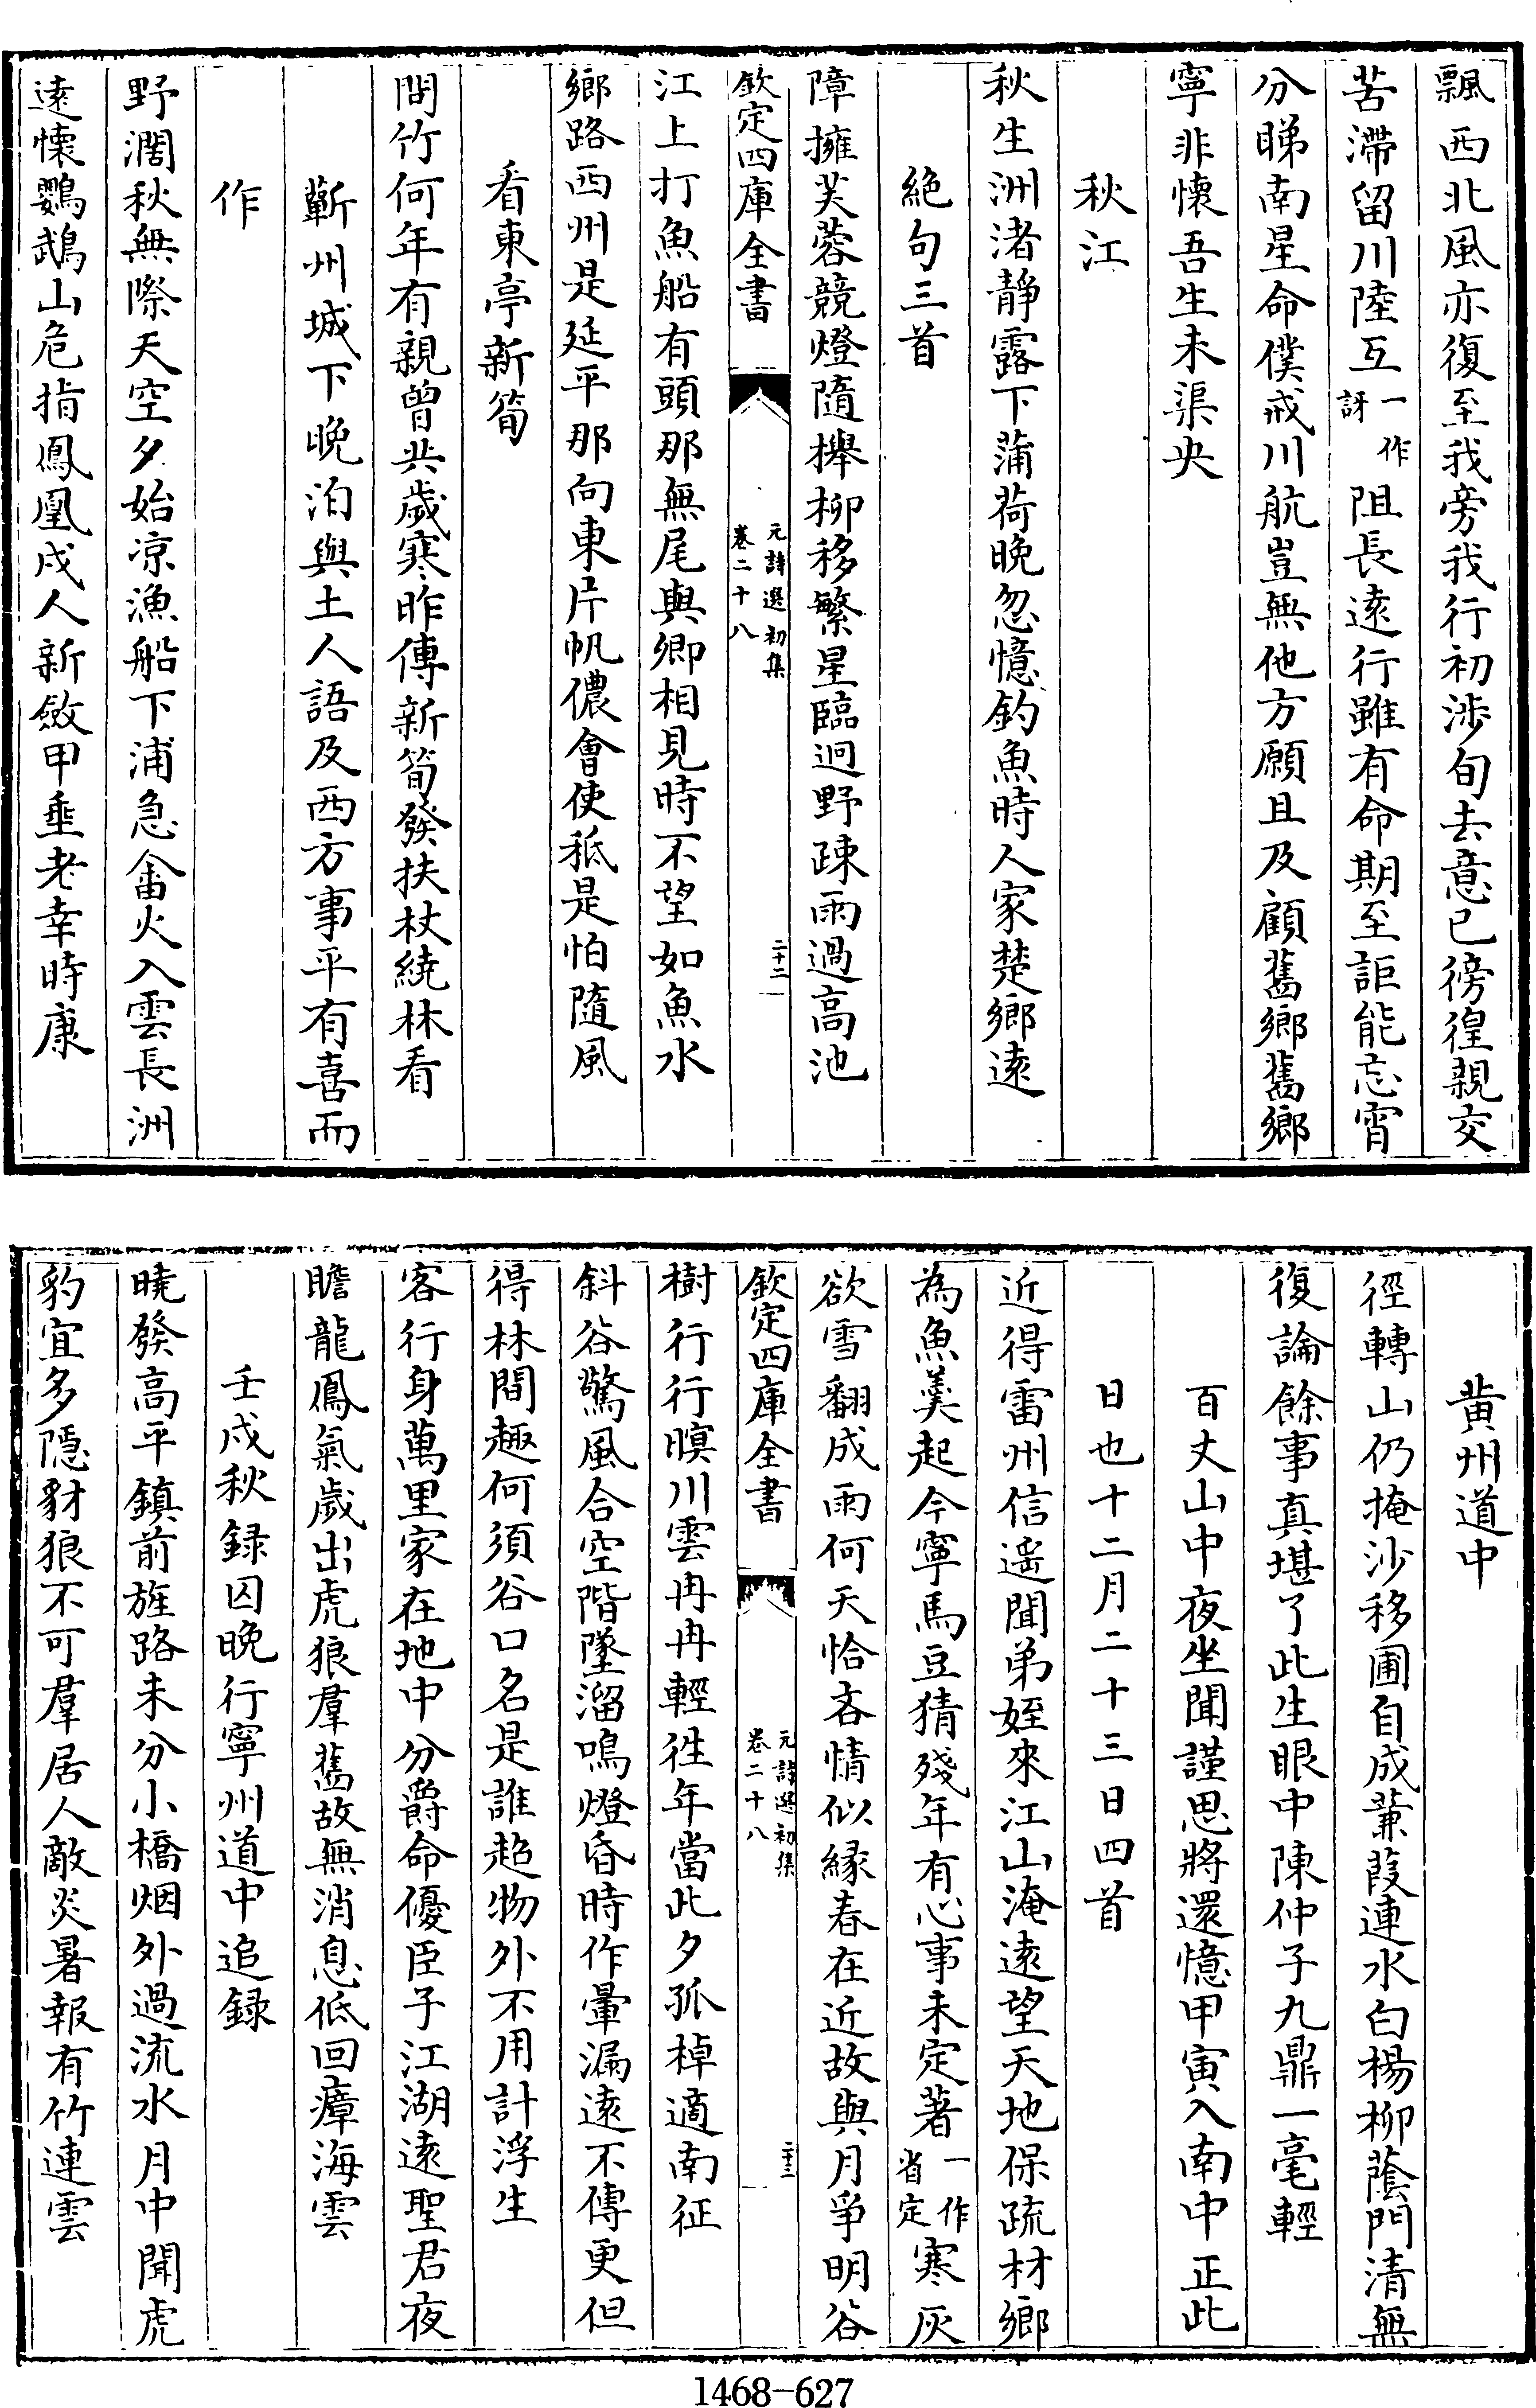 飄西北風亦復至我旁我行初渉旬去意已徬徨親交
苦滯留川陸互一作訝阻長逺行雖有命期至詎能忘宵
分睇南星命僕戒川航豈無他方願且及顧舊鄉舊鄉
寧非懷吾生未渠央
秋江
秋生洲渚靜露下蒲荷晚忽憶釣魚時人家楚鄉逺
絶句三首
障擁芙蓉競燈隨櫸柳移繁星臨逈野疎雨過髙池
欽定四庫全書
元詩選初集
卷二十八
二十二
江上打魚船有頭那無尾與卿相見時不望如魚水
鄉路西州是延平那向東片帆儂會使秪是怕隨風
看東亭新筍
問竹何年有親曾共嵗寒昨傳新筍發扶杖繞林看
蘄州城下晚泊與土人語及西方事平有喜而
作
野濶秋無際天空夕始凉漁船下浦急畬火入雲長洲
逺懷鸚鵡山危指鳳凰戍人新斂甲垂老幸時康
黄州道中
徑轉山仍掩沙移圃自成蒹葭連水白楊柳蔭門清無
復論餘事真堪了此生眼中陳仲子九鼎一毫輕
百丈山中夜坐聞謹思將還憶甲寅入南中正此
日也十二月二十三日四首
近得雷州信遥聞弟姪來江山淹逺望天地保疏材鄉
為魚羮起今寧馬豆猜殘年有心事未定著一作省定寒灰
欲雪翻成雨何天恰吝情似緣春在近故與月爭明谷
欽定四庫全書
元詩選初集
卷二十八
二十三
樹行行暝川雲冉冉輕徃年當此夕孤棹適南征
斜谷驚風合空階墜溜鳴燈昏時作暈漏逺不傳更但
得林間趣何須谷口名是誰超物外不用計浮生
客行身萬里家在地中分爵命優臣子江湖逺聖君夜
瞻龍鳳氣嵗出虎狼羣舊故無消息低回瘴海雲
壬戍秋録囚晚行寧州道中追録
曉發髙平鎮前旌路未分小橋烟外過流水月中聞虎
豹宜多隠豺狼不可羣居人敵炎暑報有竹連雲
1468-627